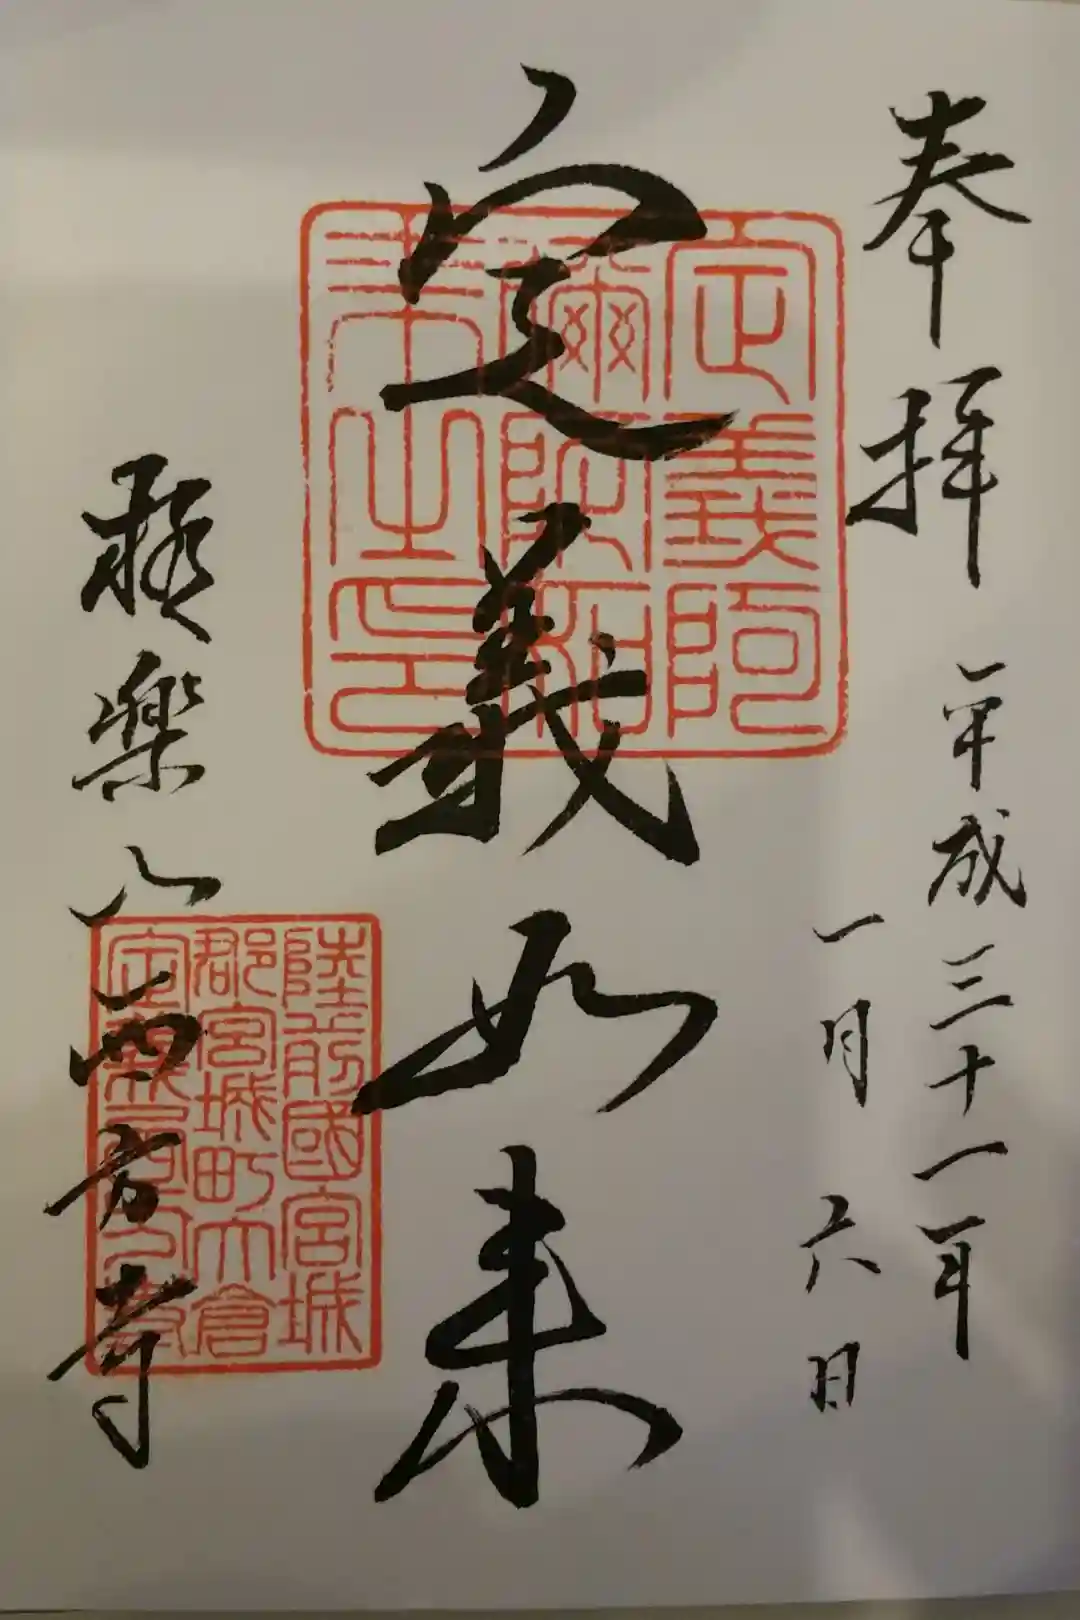 奉拝 平成三十一年
一月六日
定義如来
極楽山西方寺
定義阿
彌陀如
来之印
陸前國宮城
郡宮城町大倉
定義西方寺